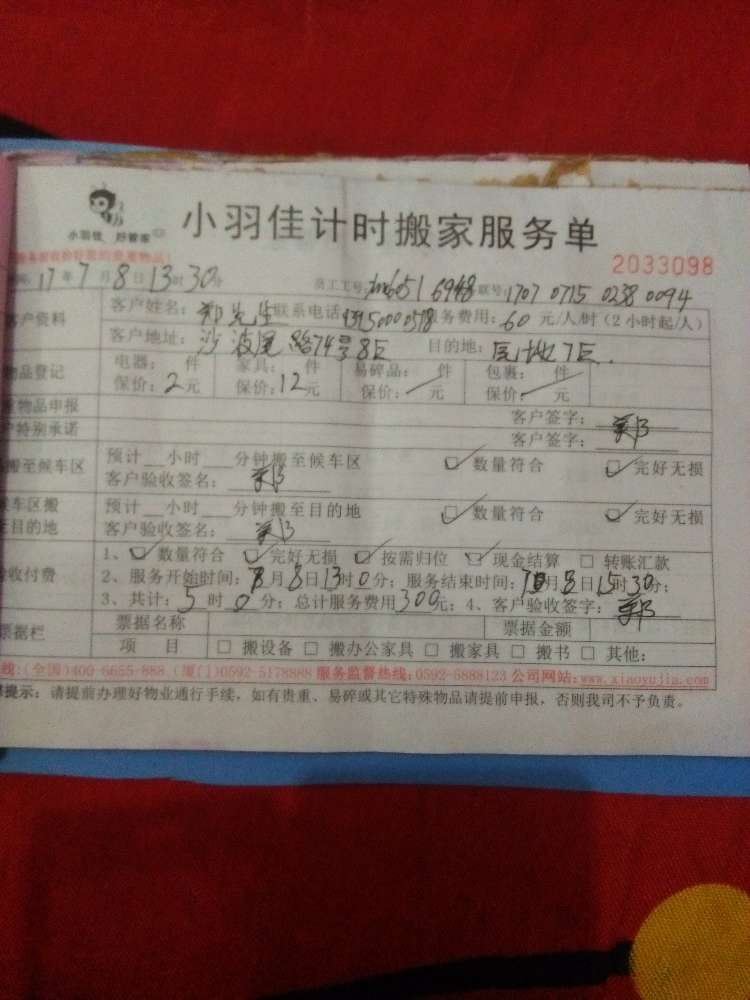 小羽佳 好管家
小羽佳计时搬家服务单
2033098
17年7月8日13时30分 员工工号: 联号:1707 0715 0238 0094
客户资料 客户姓名:郑先生 联系电话 服务费用:60元/人/时(2小时起/人)
客户地址:沙波尾路74号8E 目的地:
物品登记 电器: 件 家具: 件 易碎品: 件 包裹: 件
保价:2元 保价:12元 保价: 元 保价: 元
物品申报 客户签字:郑
户特别承诺 客户签字:
搬至候车区 预计 小时 分钟搬至候车区 ☑ 数量符合 ☑ 完好无损
客户验收签名:郑
候车区搬 预计 小时 分钟搬至目的地 ☑ 数量符合 ☑ 完好无损
至目的地 客户验收签名:郑
1、☑ 数量符合 ☑ 完好无损 ☑ 按需归位 ☑ 现金结算 □ 转账汇款
验收付费 2、服务开始时间:7月8日13时0分;服务结束时间: 月8日15时30分;
3、共计:5时0分;总计服务费用300元;4、客户验收签字:郑
票据栏 票据名称 票据金额
项 目 □ 搬设备 □ 搬办公家具 □ 搬家具 □ 搬书 □ 其他:
线:(全国)400-6655-888 (厦门)0592-5178888 服务监督热线:0592-5888123 公司网站:www.xiaoyujia.com
提示:请提前办理好物业通行手续,如有贵重、易碎或其它特殊物品请提前申报,否则我司不予负责。